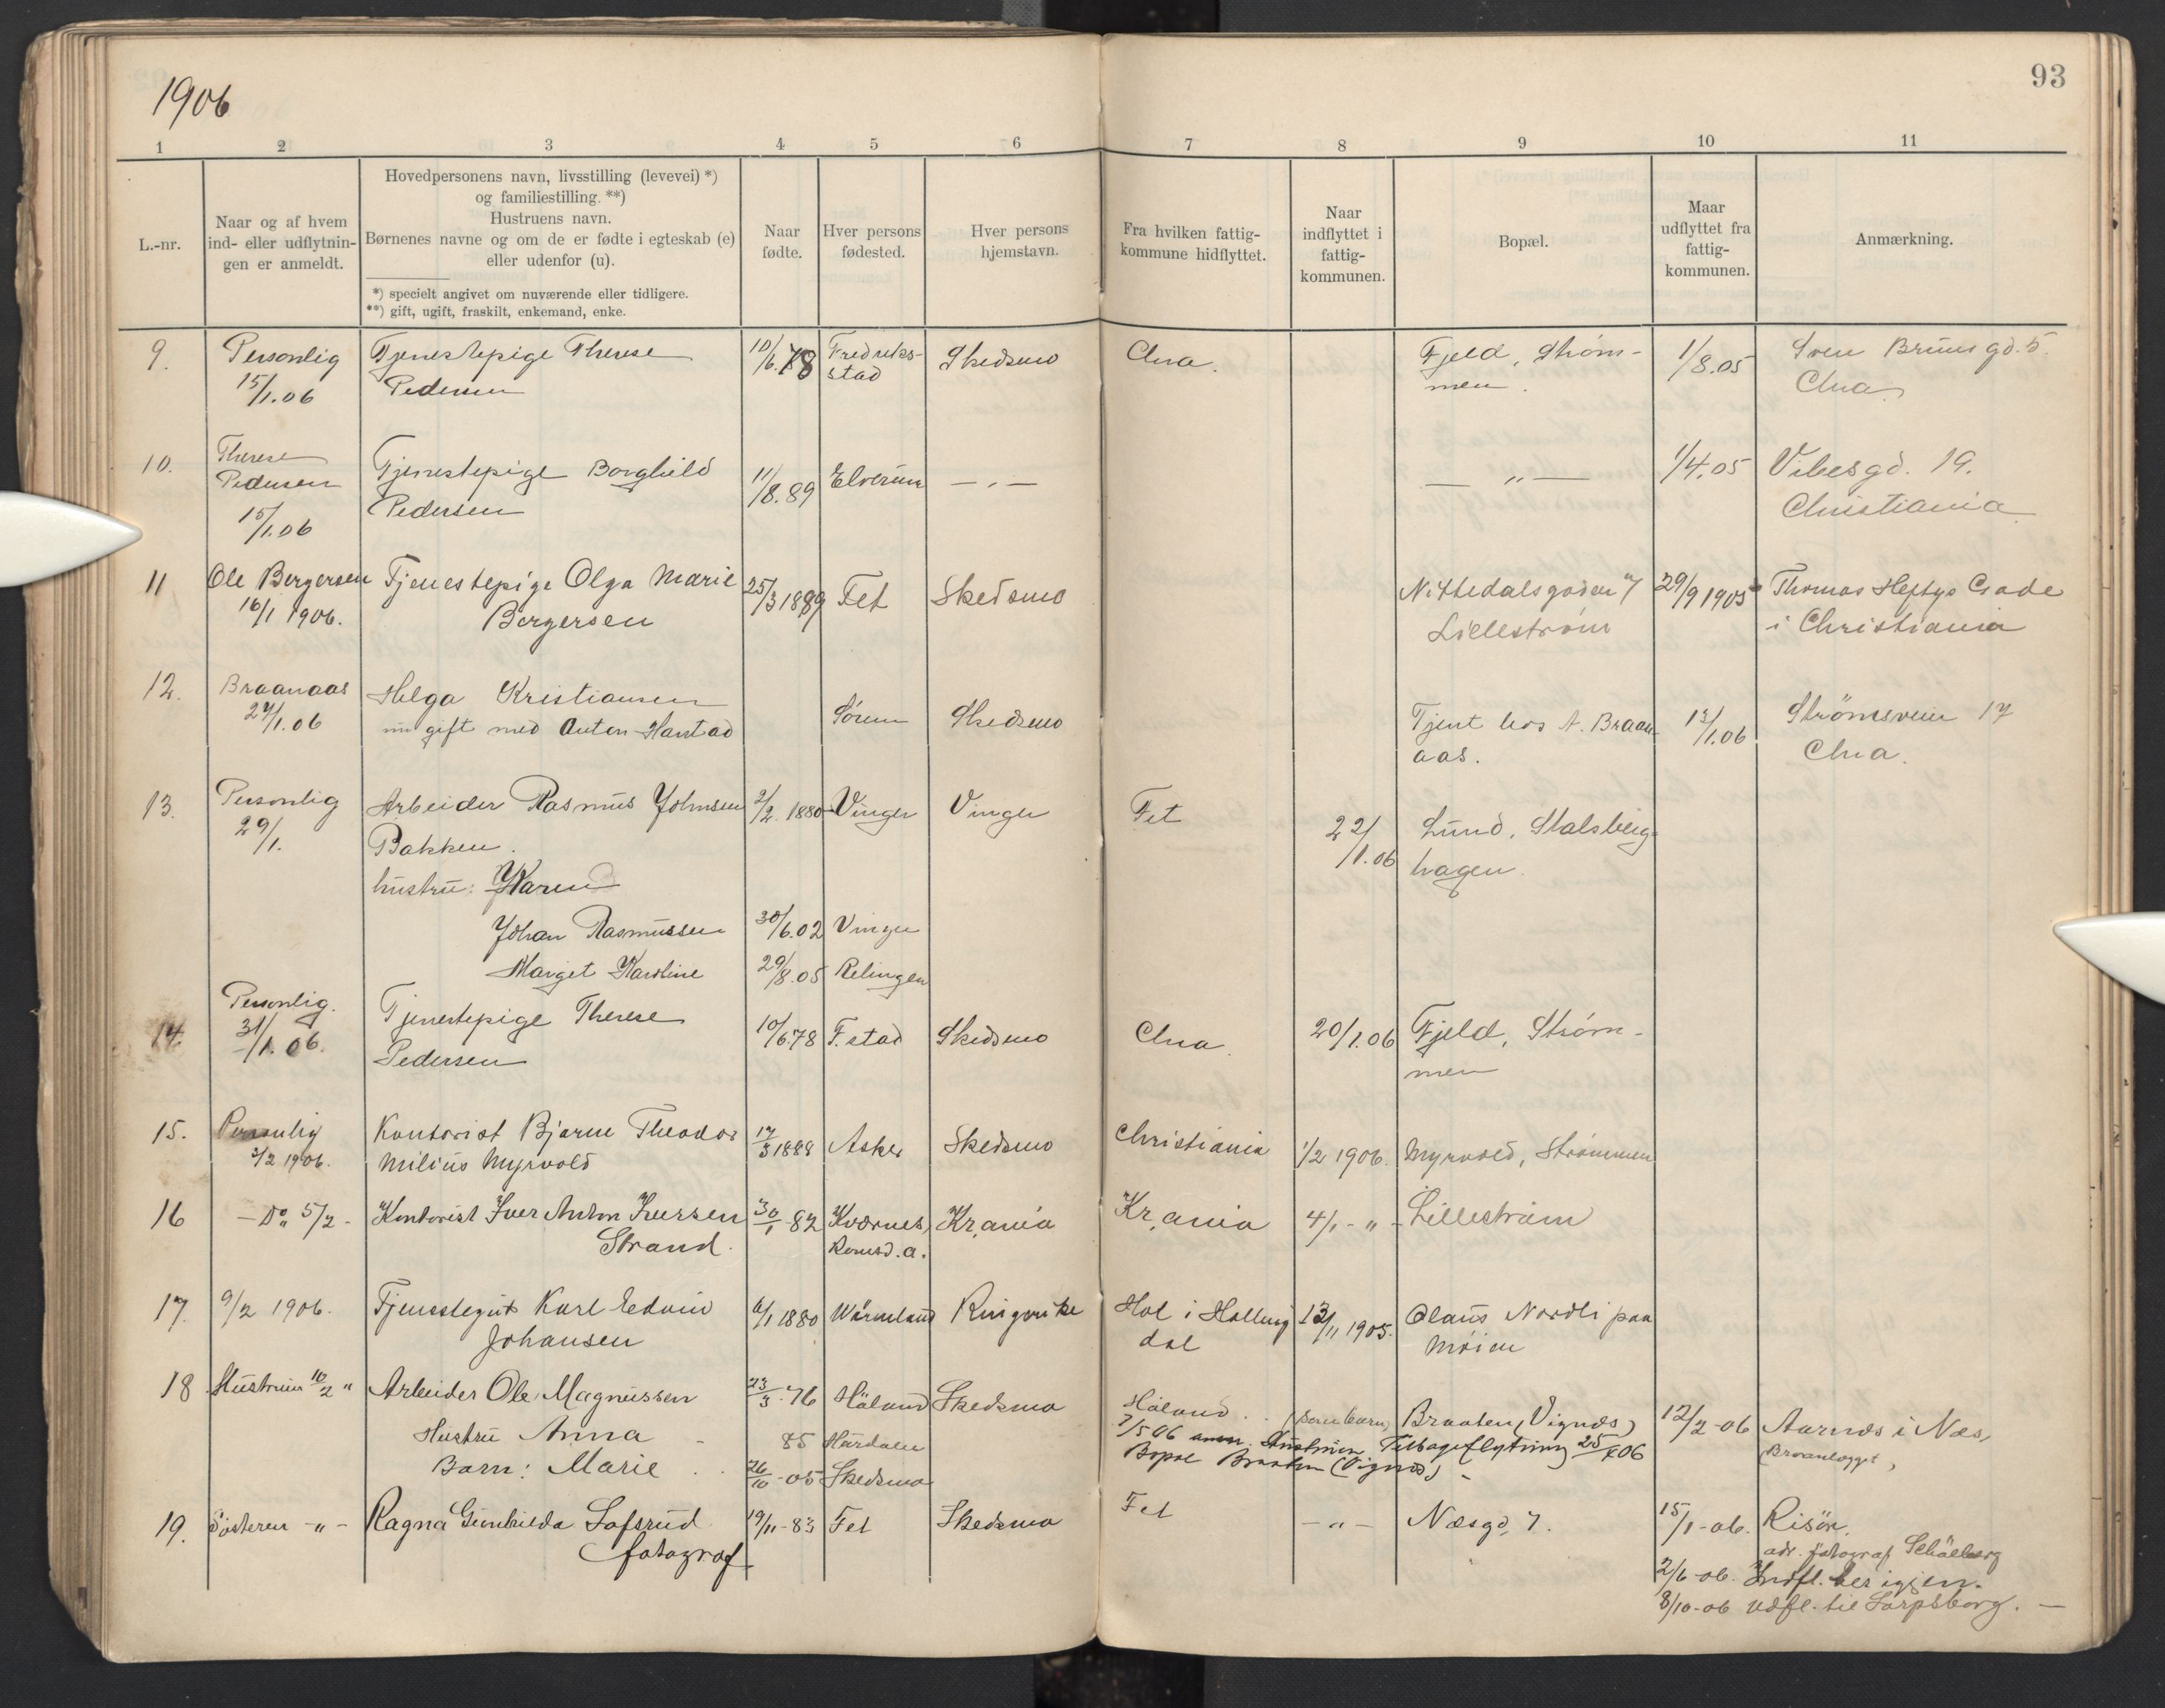 1906
93
1 2 3 4 5 6 7 8 9 10 11
L.-nr.
Naar og af hvem
ind- eller udflytnin-
gen er anmeldt.
Hovedpersonens navn, livsstilling (levevei) *)
og familiestilling. **)
Hustruens navn.
Børnenes navne og om de er fødte i egteskab (e)
eller udenfor (u).
*) specielt angivet om nuværende eller tidligere.
**) gift, ugift, fraskilt, enkemand, enke.
Naar
fødte.
Hver persons
fødested.
Hver persons
hjemstavn.
Fra hvilken fattig-
kommune hidflyttet.
Naar
indflyttet i
fattig-
kommunen.
Bopæl.
Maar
udflyttet fra
fattig-
kommunen.
Anmærkning.
9. Personlig Tjenestepige Therese 10/6.78 Fredriks- Skedsmo Chra. Fjeld, Strøm- 1/8.05 Sven Bruns gd. 5.
15/1.06 Pedersen stad men. Chra.
10. Therese
Pedersen Tjenestepige Borghild 11/8.89 Elverum — " — — " — 1/4.05 Vibesgd. 19.
15/1.06 Pedersen Christiania
11 Ole Bergersen Tjenestepige Olga Marie 25/3 1889 Fet Skedsmo Nittedalsgaden 7 29/9 1905 Thomas Heftys Gade
16/1 1906. Bergersen Lillestrøm i Christiania
12. Braanaas Helga Kristiansen Sørum Skedsmo Tjent hos A. Braan- 13/1.06 Strömsveien 17
27/1.06 nu gift med Anton Hanstad aas. Chra.
13. Personlig Arbeider Rasmus Johnsen 2/2. 1880 Vinger Vinger Fet 22/1.06 Lund, Stalsberg-
29/1. Bakken. hagen.
hustru: Karen
Johan Rasmussen 30/6.02 Vinger
Marget Karoline 29/8.05 Relingen
14. Personlig. Tjenestepige Therese 10/6.78 F.stad Skedsmo Chra. 20/1.06 Fjeld, Strøm-
31/1.06. Pedersen men
15. Personlig Kontorist Bjarne Theodor 17/3 1888 Asker Skedsmo Christiania 1/2 1906. Myrvold, Strømmen
2/2 1906. Milius Myrvold
16 — Do 5/2 - Kontorist Iver Anton Iversen 30/1 - 82 Kvernes, Kr.ania Kr.ania 4/1 - " - Lillestrøm
Strand. Romsd. a.
17. 9/2 1906. Tjenestegut Karl Edvin 6/1 1880 Wärmland Ringerike Hol i Halling 13/11 1905. Olaus Nordli paa
Johansen dal Moien
18 Hustruen 10/2 " Arbeider Ole Magnussen 23/3.76 Höland Skedsmo Höland . . (som barn) Braaten (Vignæs) 12/2-06 Aarnæs i Næs,
Hustru Anna - 85 Hurdalen 7/5 06 anm. Hustruen Tilbageflytning 25/4 06 (Broanlægget,
Barn: Marie . . 26/10 - 05 Skedsmo Bopæl Braaten (Vignæs) -
19. Søsteren - " - Ragna Gunhilda Lofsrud 19/11 - 83 Fet Skedsmo Fet - " - Næsgd. 7. 15/1-06. Risör.
fotograf adr. fotograf
2/6-06. Indfl. her igjen.
8/10-06 udfl. til Sarpsborg. —